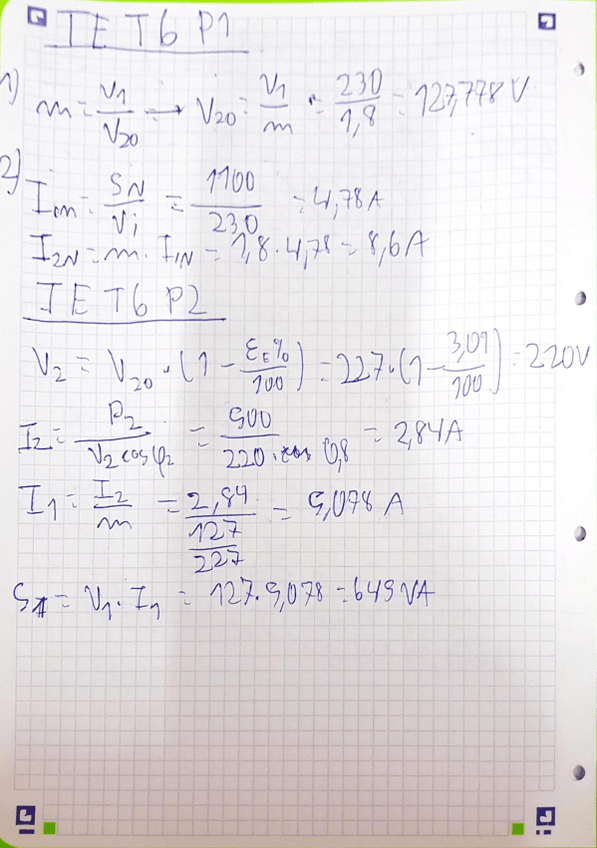 IE T6 P1
1) m = V1/V20 → V20 = V1/m = 230/1,8 = 127,778 V
2) I1N = SN/Vi = 1100/230 = 4,78 A
I2N = m · I1N = 1,8 · 4,78 = 8,6 A
IE T6 P2
V2 = V20 · (1 - εE%/100) = 227 · (1 - 3,09/100) = 220V
I2 = P2/V2 cos φ2 = 500/220 · 0,8 = 2,84A
I1 = I2/m = 2,84/(127/227) = 5,078 A
S1 = V1 · I1 = 127 · 5,078 = 645 VA